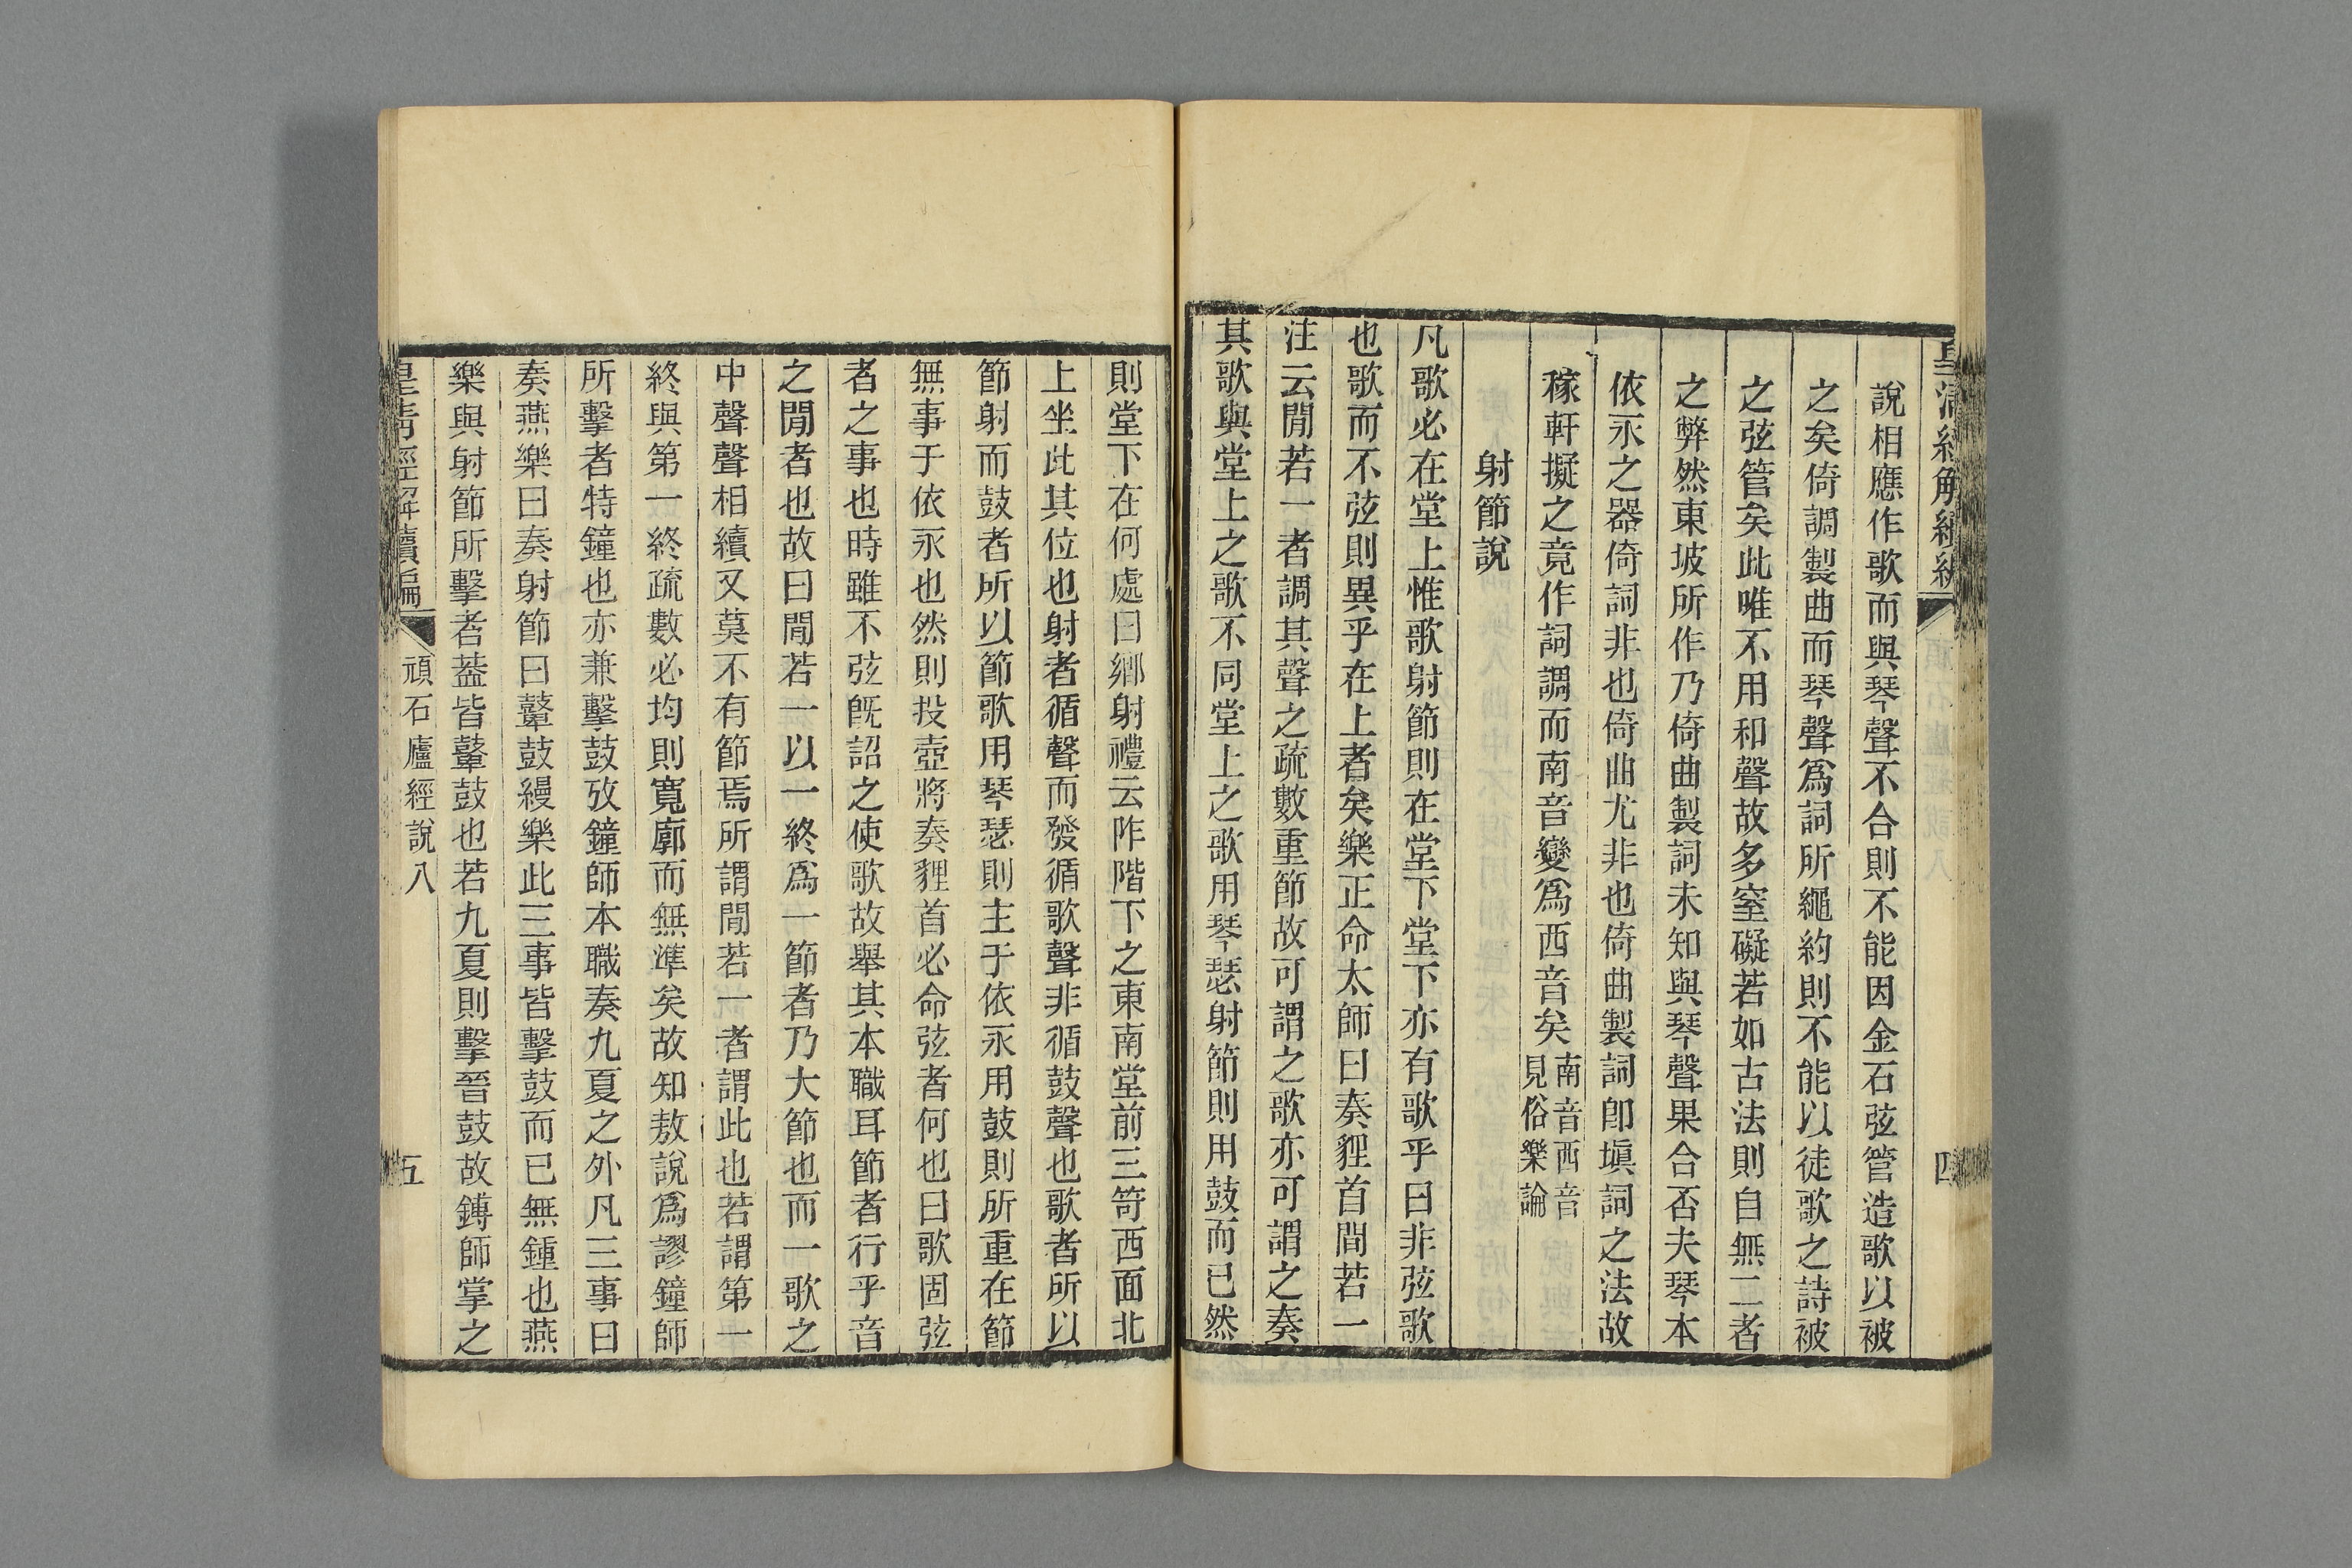 皇清經解續編
四
說相應作歌而與琴聲不合則不能因金石弦管造歌以被
之矣倚調製曲而琴聲爲詞所繩約則不能以徒歌之詩被
之弦管矣此唯不用和聲故多窒礙若如古法則自無二者
之弊然東坡所作乃倚曲製詞未知與琴聲果合否夫琴本
依永之器倚詞非也倚曲尤非也倚曲製詞卽塡詞之法故
稼軒擬之竟作詞調而南音變爲西音矣南音西音
見俗樂論
射節說
凡歌必在堂上惟歌射節則在堂下堂下亦有歌乎曰非弦歌
也歌而不弦則異乎在上者矣樂正命太師曰奏貍首間若一
注云閒若一者調其聲之疏數重節故可謂之歌亦可謂之奏
其歌與堂上之歌不同堂上之歌用琴瑟射節則用鼓而已然
則堂下在何處曰鄉射禮云阼階下之東南堂前三笴西面北
上坐此其位也射者循聲而發循歌聲非循鼓聲也歌者所以
節射而鼓者所以節歌用琴瑟則主于依永用鼓則所重在節
無事于依永也然則投壺將奏貍首必命弦者何也曰歌固弦
者之事也時雖不弦旣詔之使歌故舉其本職耳節者行乎音
之閒者也故曰閒若一以一終爲一節者乃大節也而一歌之
中聲聲相續又莫不有節焉所謂閒若一者謂此也若謂第一
終與第一終疏數必均則寬廓而無準矣故知敖說爲謬鐘師
所擊者特鐘也亦兼擊鼓攷鐘師本職奏九夏之外凡三事曰
奏燕樂曰奏射節曰鼙鼓縵樂此三事皆擊鼓而已無鍾也燕
樂與射節所擊者葢皆鼙鼓也若九夏則擊晉鼓故鎛師掌之
皇淸經解續編
頑石廬經說八
五